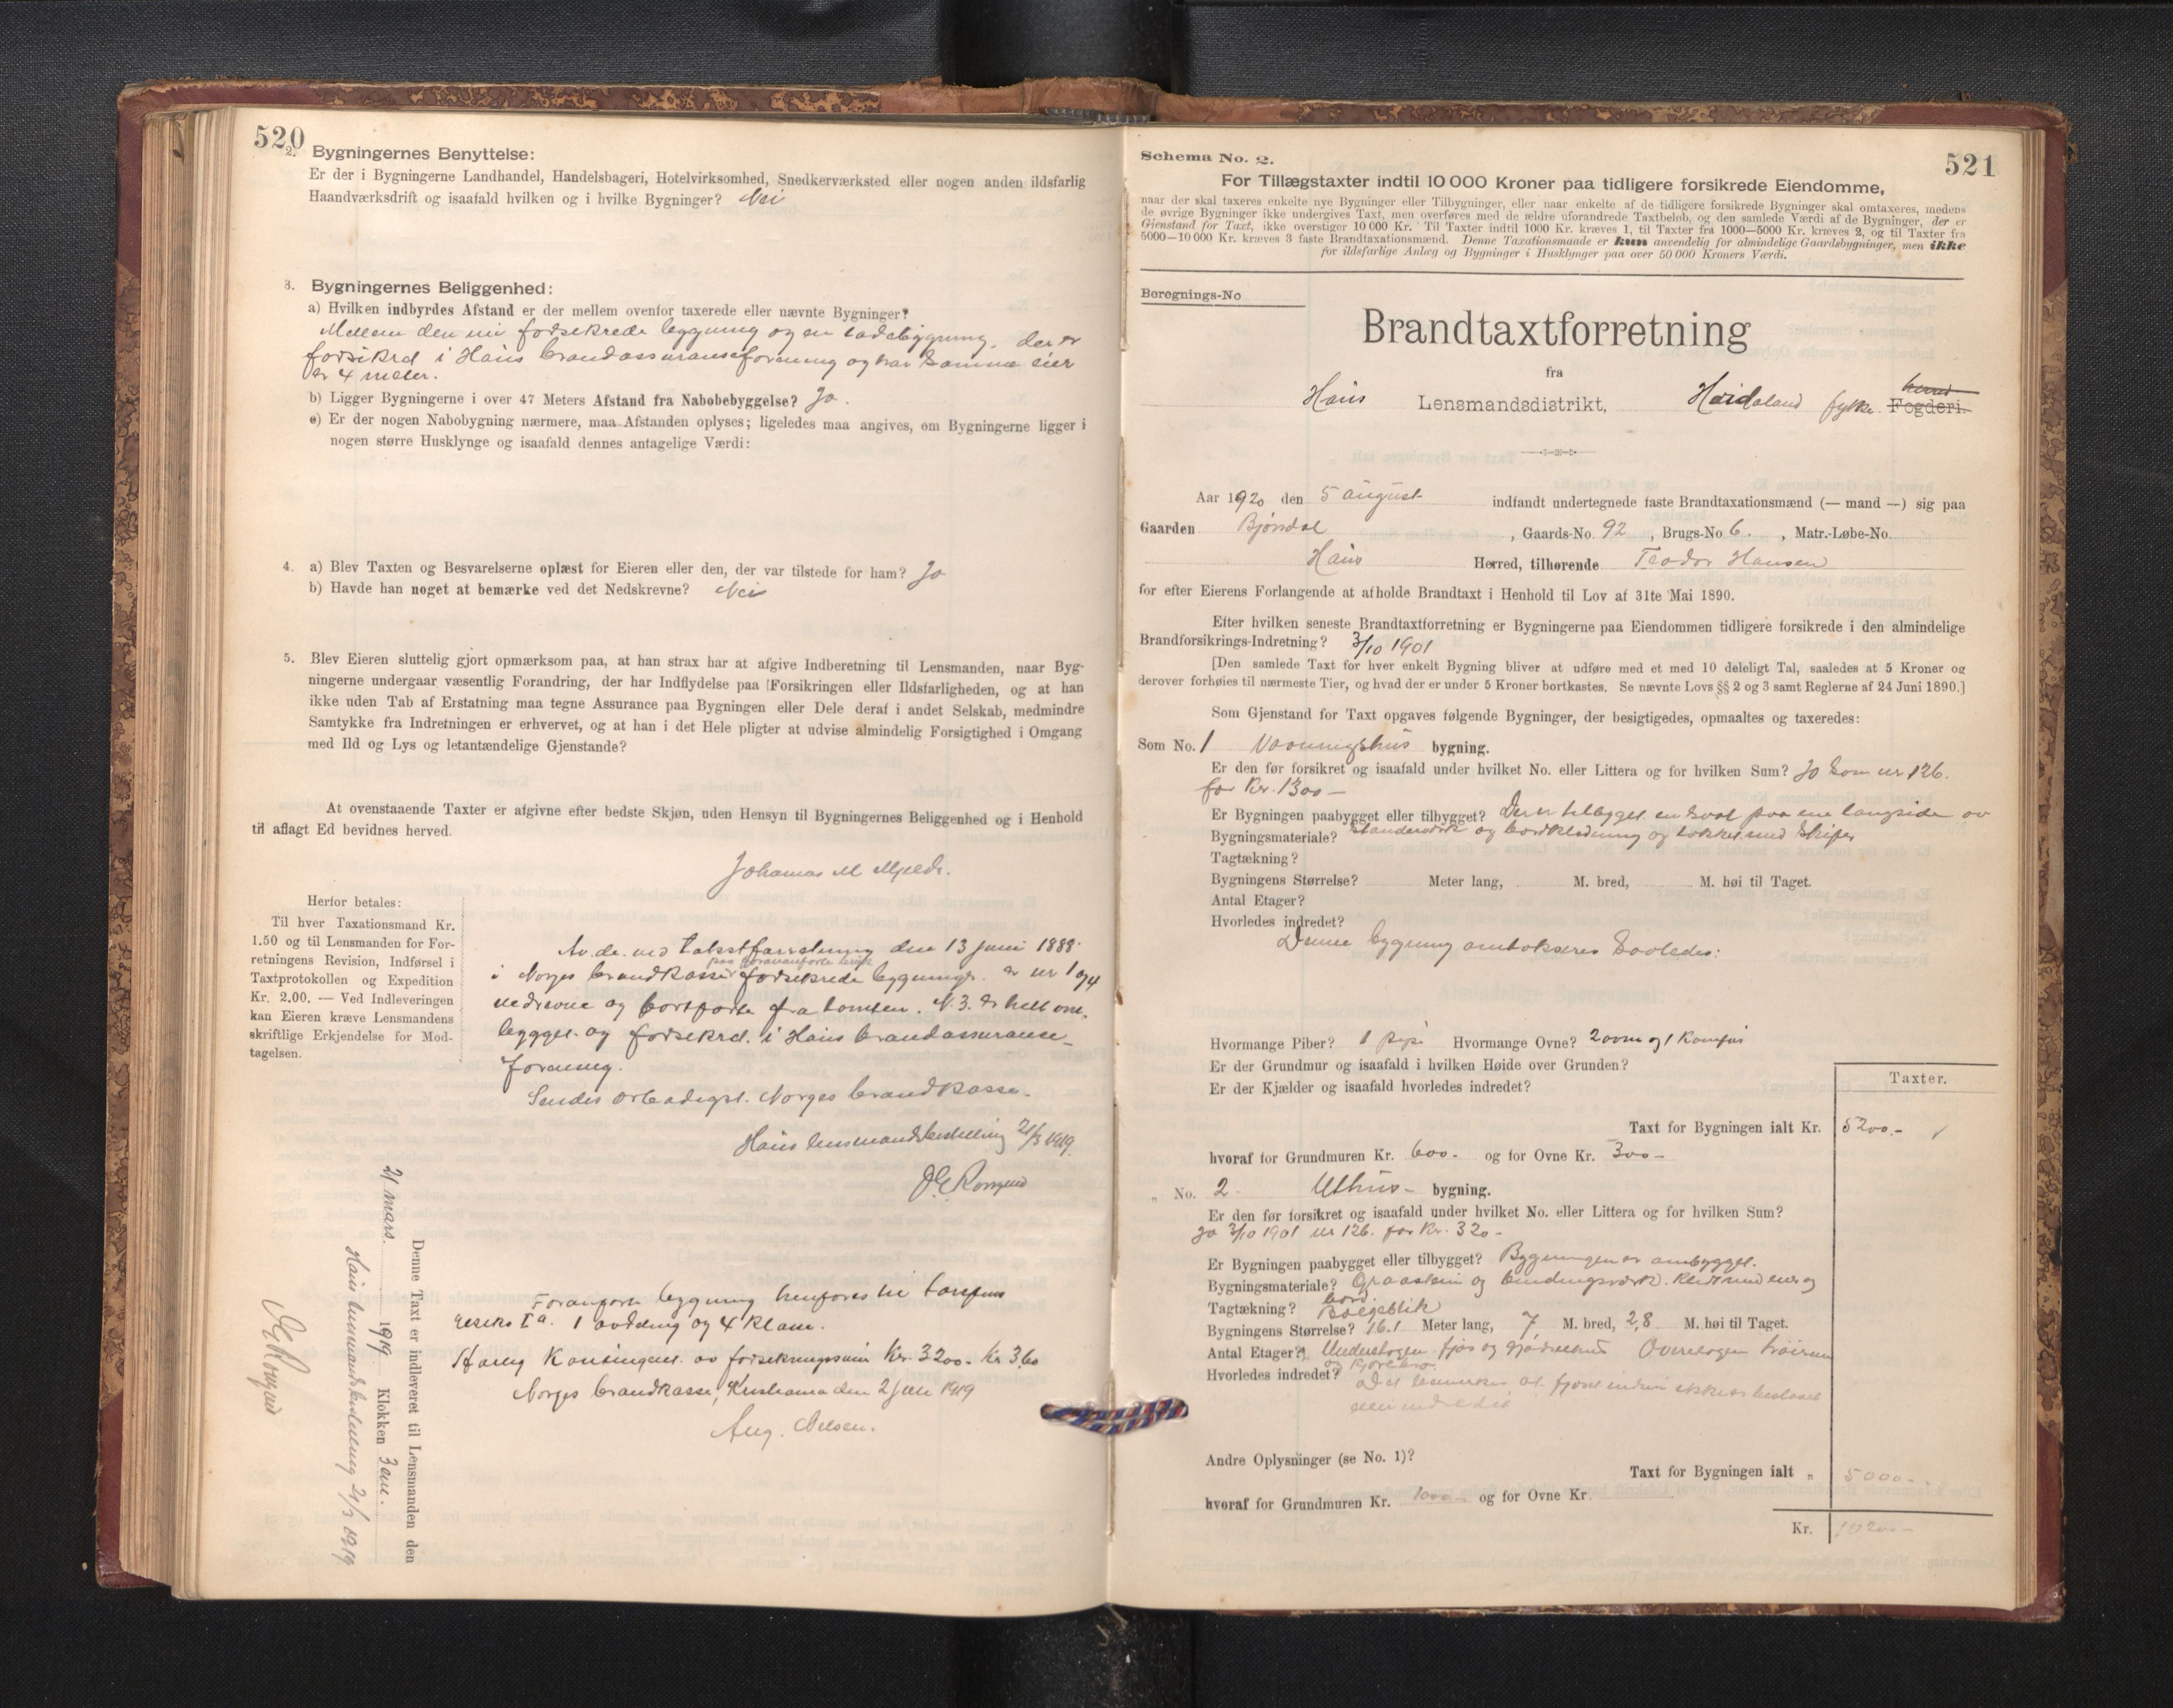 520
2. Bygningernes Benyttelse:
Er der i Bygningerne Landhandel, Handelsbageri, Hotelvirksomhed, Snedkerværksted eller nogen anden ildsfarlig
Haandværksdrift og isaafald hvilken og i hvilke Bygninger? Nei
3. Bygningernes Beliggenhed:
a) Hvilken indbyrdes Afstand er der mellem ovenfor taxerede eller nævnte Bygninger?
Mellem den nu forsekrede bygning og en ladebygning, der er
forsikrd i Haus brandassuranseforening og har samme eier
er 4 meter.
b) Ligger Bygningerne i over 47 Meters Afstand fra Nabobebyggelse? Jo.
c) Er der nogen Nabobygning nærmere, maa Afstanden oplyses; ligeledes maa angives, om Bygningerne ligger i
nogen større Husklynge og isaafald dennes antagelige Værdi:
4. a) Blev Taxten og Besvarelserne oplæst for Eieren eller den, der var tilstede for ham? Jo
b) Havde han noget at bemærke ved det Nedskrevne? Nei
5. Blev Eieren sluttelig gjort opmærksom paa, at han strax har at afgive Indberetning til Lensmanden, naar Byg-
ningerne undergaar væsentlig Forandring, der har Indflydelse paa Forsikringen eller Ildsfarligheden, og at han
ikke uden Tab af Erstatning maa tegne Assurance paa Bygningen eller Dele deraf i andet Selskab, medmindre
Samtykke fra Indretningen er erhvervet, og at han i det Hele pligter at udvise almindelig Forsigtighed i Omgang
med Ild og Lys og letantændelige Gjenstande?
At ovenstaaende Taxter er afgivne efter bedste Skjøn, uden Hensyn til Bygningernes Beliggenhed og i Henhold
til aflagt Ed bevidnes herved.
Johannes M Mjelde.
Herfor betales:
Til hver Taxationsmand Kr.
1.50 og til Lensmanden for For-
retningens Revision, Indførsel i
Taxtprotokollen og Expedition
Kr. 2.00. — Ved Indleveringen
kan Eieren kræve Lensmandens
skriftlige Erkjendelse for Mod-
tagelsen.
Av de ved takstforretning den 13 juni 1888
paa forananførte bruk
i Norges brandkasse forsekrede bygninger er nr 1 og 4
nedrevne og bortførte fra tomten. N. 3. er helt om-
bygget og forsekrd. i Haus brandassuranse-
forening.
Sendes Norges brandkasse.
Haus lensmandsbestilling 21/3 1919.
Denne Taxt er indleveret til Lensmanden den
21 mars. 1919 Klokken 3 em.
Haus lensmandsbestilling 21/3 1919
Foranførte bygning henføres til
1 avdeling og 4 klasse.
Aarlig Kontingent av forsekringssum Kr. 3200.- Kr 3,60
Norges brandkasse, Kristiania den 2 juli 1919
Aug. Nelsen.
521
Schema No. 2.
For Tillægstaxter indtil 10 000 Kroner paa tidligere forsikrede Eiendomme,
naar der skal taxeres enkelte nye Bygninger eller Tilbygninger, eller naar enkelte af de tidligere forsikrede Bygninger skal omtaxeres, medens
de øvrige Bygninger ikke undergives Taxt, men overføres med de ældre uforandrede Taxtbeløb, og den samlede Værdi af de Bygninger, der er
Gjenstand for Taxt, ikke overstiger 10 000 Kr. Til Taxter indtil 1000 Kr. kræves 1, til Taxter fra 1000—5000 Kr. kræves 2, og til Taxter fra
5000—10 000 Kr. kræves 3 faste Brandtaxationsmænd. Denne Taxationsmaade er kun anvendelig for almindelige Gaardsbygninger, men ikke
for ildsfarlige Anlæg og Bygninger i Husklynger paa over 50 000 Kroners Værdi.
Beregnings-No
Brandtaxtforretning
fra
Haus Lensmandsdistrikt, Hordaland fylke Fogderi.
Aar 1920 den 5 august indfandt undertegnede faste Brandtaxationsmænd (— mand —) sig paa
Gaarden Bjørndal, Gaards-No. 92, Brugs-No 6., Matr.-Løbe-No.
Haus Herred, tilhørende Teodor Hansen
for efter Eierens Forlangende at afholde Brandtaxt i Henhold til Lov af 31te Mai 1890.
Efter hvilken seneste Brandtaxtforretning er Bygningerne paa Eiendommen tidligere forsikrede i den almindelige
Brandforsikrings-Indretning? 3/10 1901
[Den samlede Taxt for hver enkelt Bygning bliver at udføre med et med 10 deleligt Tal, saaledes at 5 Kroner og
derover forhøies til nærmeste Tier, og hvad der er under 5 Kroner bortkastes. Se nævnte Lovs §§ 2 og 3 samt Reglerne af 24 Juni 1890.]
Som Gjenstand for Taxt opgaves følgende Bygninger, der besigtigedes, opmaaltes og taxeredes:
Som No. 1 Vaaningshus bygning.
Er den før forsikret og isaafald under hvilket No. eller Littera og for hvilken Sum? Jo som nr 126.
for Kr. 1300 —
Er Bygningen paabygget eller tilbygget? Der er tilbygget en sval paa ene langside av
Bygningsmateriale? standerverk og bordkledning og tækket med skifer
Tagtækning?
Bygningens Størrelse? Meter lang, M. bred, M. høi til Taget.
Antal Etager?
Hvorledes indredet?
Denne bygning omtakseres saaledes:
Hvormange Piber? 1 pipe Hvormange Ovne? 2 ovne og 1 Komfur
Er der Grundmur og isaafald i hvilken Høide over Grunden?
Er der Kjælder og isaafald hvorledes indredet?
Taxter.
Taxt for Bygningen ialt Kr. 5200.-
hvoraf for Grundmuren Kr. 600.- og for Ovne Kr. 300 —
" No. 2 Uthus- bygning.
Er den før forsikret og isaafald under hvilket No. eller Littera og for hvilken Sum?
Jo 3/10 1901 nr 126. for Kr. 320 -
Er Bygningen paabygget eller tilbygget? Bygningen er ombygget.
Bygningsmateriale? Graasten og bindingsværk. Kledt med
bord
Tagtækning? Bølgeblik
Bygningens Størrelse? 16.1 Meter lang, 7, M. bred, 2,8 M. høi til Taget.
Antal Etager? Underetagen fjøs og gjødselhus Overetagen høirum
og kjørebro.
Hvorledes indredet? Det bemerkes at fjøset endnu ikke er
Andre Oplysninger (se No. 1)?
Taxt for Bygningen ialt " 5000 -
hvoraf for Grundmuren Kr. 1000 - og for Ovne Kr.
Kr. 10200 —